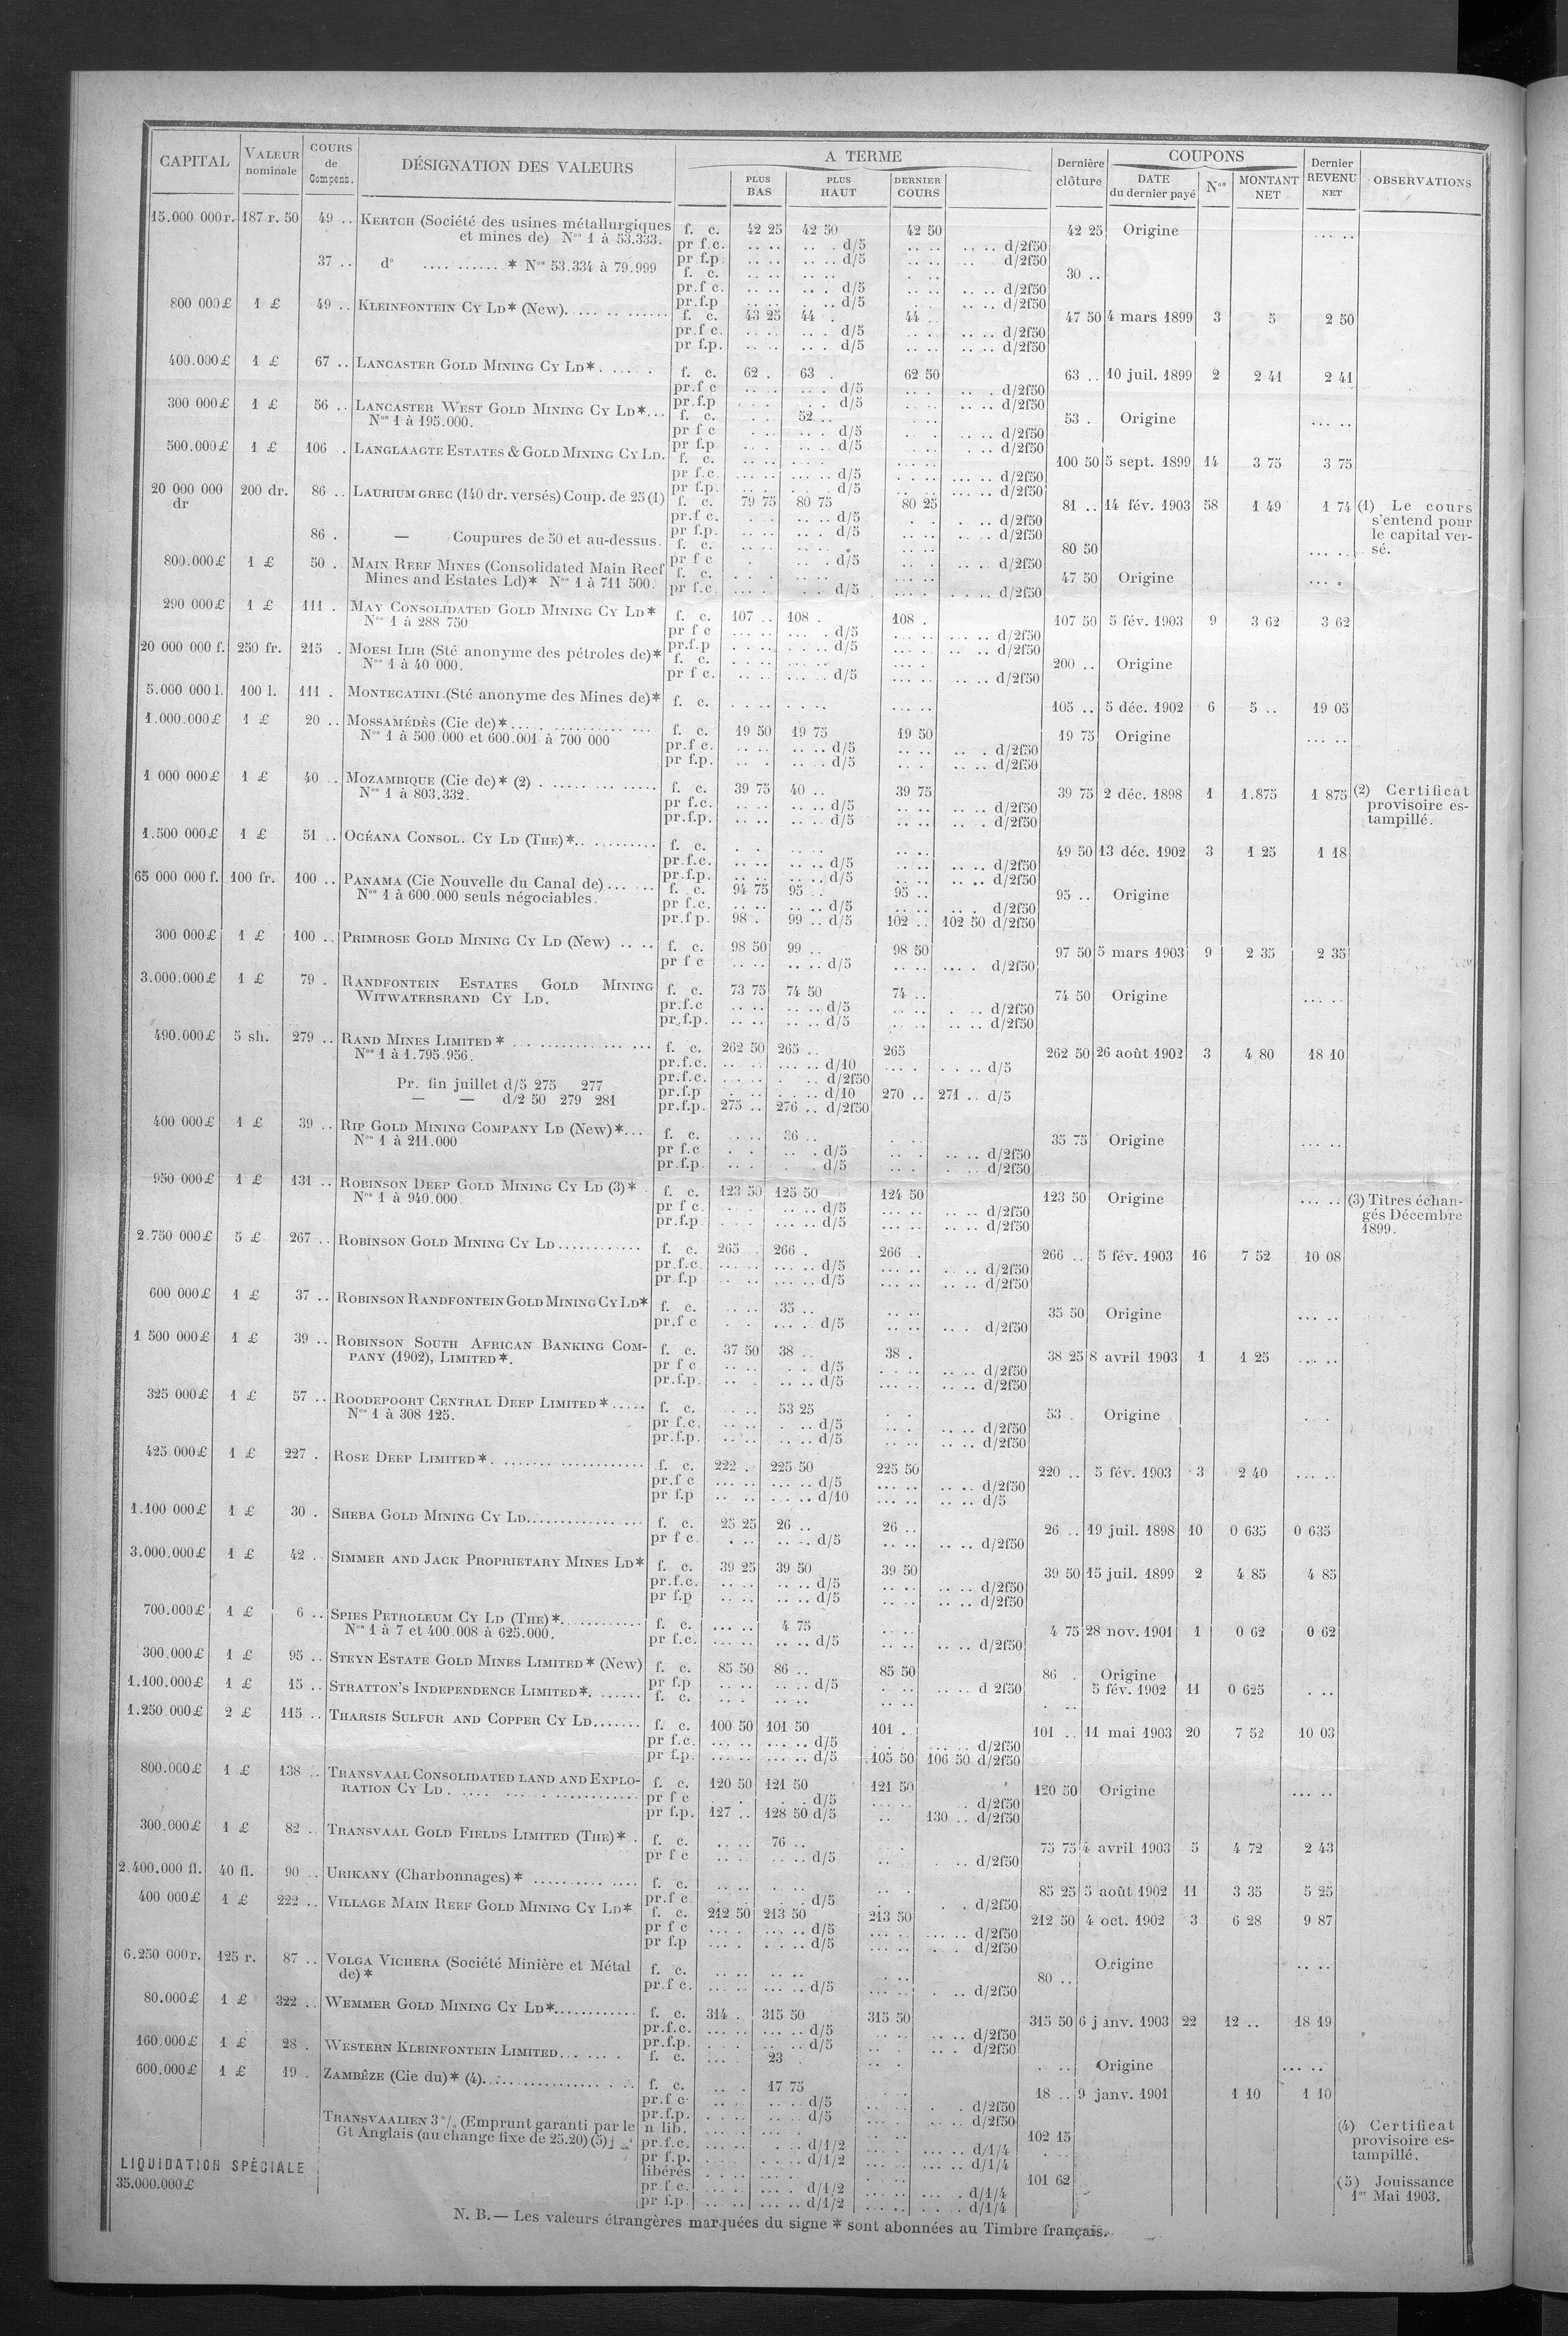 CAPITAL VALEUR nominale COURS de Compens. DÉSIGNATION DES VALEURS A TERME PLUS BAS PLUS HAUT DERNIER COURS Dernière clôture COUPONS DATE du dernier payé Nos MONTANT NET Dernier REVENU NET OBSERVATIONS
15.000 000 r. 187 r. 50 49 .. KERTCH (Société des usines métallurgiques f. c. 42 25 42 50 42 50 42 25 Origine
et mines de) Nos 1 à 53.333. pr f.c. d/5 d/2f50
pr f.p d/5 d/2f50
37 .. do * Nos 53.334 à 79.999 f. c. 30 ..
pr.f c. d/5 d/2f50
pr.f.p d/5 d/2f50
800 000£ 1 £ 49 .. KLEINFONTEIN CY LD* (New) f. c. 43 25 44 . 44 47 50 4 mars 1899 3 5 2 50
pr.f c. d/5 d/2f50
pr f.p. d/5 d/2f50
400.000£ 1 £ 67 .. LANCASTER GOLD MINING CY LD* f. c. 62 . 63 . 62 50 63 .. 10 juil. 1899 2 2 41 2 41
pr.f c d/5 d/2f50
pr.f.p d/5 d/2f50
300 000£ 1 £ 56 .. LANCASTER WEST GOLD MINING CY LD* f. c. 52 .. 53 . Origine
Nos 1 à 195.000. pr f c d/5 d/2f50
pr f.p d/5 d/2f50
500.000£ 1 £ 106 . LANGLAAGTE ESTATES & GOLD MINING CY LD. f. c. 100 50 5 sept. 1899 14 3 75 3 75
pr f.c. d/5 d/2f50
pr f.p. d/5 d/2f50
20 000 000 dr 200 dr. 86 .. LAURIUM GREC (140 dr. versés) Coup. de 25 (1) f. c. 79 75 80 75 80 25 81 .. 14 fév. 1903 58 1 49 1 74 (1) Le cours s'entend pour le capital versé.
pr.f c. d/5 d/2f50
pr f.p. d/5 d/2f50
86 . — Coupures de 50 et au-dessus. f. c. 80 50
pr f c d/5 d/2f50
800.000£ 1 £ 50 . MAIN REEF MINES (Consolidated Main Reef f. c. 47 50 Origine
Mines and Estates Ld)* Nos 1 à 711 500. pr f.c. d/5 d/2f50
290 000£ 1 £ 111 . MAY CONSOLIDATED GOLD MINING CY LD* f. c. 107 .. 108 . 108 . 107 50 5 fév. 1903 9 3 62 3 62
Nos 1 à 288 750 pr f c d/5 d/2f50
pr.f.p d/5 d/2f50
20 000 000 f. 250 fr. 215 . MOESI ILIR (Sté anonyme des pétroles de)* f. c. 200 .. Origine
Nos 1 à 40 000. pr f c. d/5 d/2f50
5.000 000 l. 100 l. 111 . MONTECATINI (Sté anonyme des Mines de)* f. c. 105 .. 5 déc. 1902 6 5 .. 19 05
1.000.000£ 1 £ 20 .. MOSSAMÉDÈS (Cie de)* f. c. 19 50 19 75 19 50 19 75 Origine
Nos 1 à 500 000 et 600.001 à 700 000 pr.f c. d/5 d/2f50
pr f.p. d/5 d/2f50
1 000 000£ 1 £ 40 .. MOZAMBIQUE (Cie de)* (2) f. c. 39 75 40 .. 39 75 39 75 2 déc. 1898 1 1.875 1 875 (2) Certificat provisoire estampillé.
Nos 1 à 803.332. pr f.c. d/5 d/2f50
pr.f.p. d/5 d/2f50
1.500 000£ 1 £ 51 .. OCÉANA CONSOL. CY LD (THE)* f. c. 49 50 13 déc. 1902 3 1 25 1 18
pr.f.c. d/5 d/2f50
pr.f.p. d/5 d/2f50
65 000 000 f. 100 fr. 100 .. PANAMA (Cie Nouvelle du Canal de) f. c. 94 75 95 .. 95 .. 95 .. Origine
Nos 1 à 600.000 seuls négociables. pr f.c. d/5 d/2f50
pr.f p. 98 . 99 .. d/5 102 .. 102 50 d/2f50
300 000£ 1 £ 100 .. PRIMROSE GOLD MINING CY LD (New) f. c. 98 50 99 .. 98 50 97 50 5 mars 1903 9 2 35 2 35
pr f c d/5 d/2f50
3.000.000£ 1 £ 79 . RANDFONTEIN ESTATES GOLD MINING f. c. 73 75 74 50 74 .. 74 50 Origine
WITWATERSRAND CY LD. pr.f.c d/5 d/2f50
pr.f.p. d/5 d/2f50
490.000£ 5 sh. 279 .. RAND MINES LIMITED * f. c. 262 50 265 .. 265 262 50 26 août 1902 3 4 80 18 10
Nos 1 à 1.795.956. pr.f.c. d/10 d/5
pr.f.c. d/2f50
Pr. fin juillet d/5 275 277 pr.f.p d/10 270 .. 271 .. d/5
— — d/2 50 279 281 pr.f.p. 275 .. 276 .. d/2f50
400 000£ 1 £ 39 .. RIP GOLD MINING COMPANY LD (New)* f. c. 36 .. 35 75 Origine
Nos 1 à 211.000 pr f.c d/5 d/2f50
pr.f.p. d/5 d/2f50
950 000£ 1 £ 131 .. ROBINSON DEEP GOLD MINING CY LD (3)* f. c. 123 50 125 50 124 50 123 50 Origine (3) Titres échangés Décembre 1899.
Nos 1 à 940.000 pr f c. d/5 d/2f50
pr.f.p d/5 d/2f50
2.750 000£ 5 £ 267 .. ROBINSON GOLD MINING CY LD f. c. 265 . 266 . 266 . 266 .. 5 fév. 1903 16 7 52 10 08
pr.f.c d/5 d/2f50
pr f.p d/5 d/2f50
600 000£ 1 £ 37 .. ROBINSON RANDFONTEIN GOLD MINING CY LD* f. c. 35 .. 35 50 Origine
pr.f c d/5 d/2f50
1 500 000£ 1 £ 39 .. ROBINSON SOUTH AFRICAN BANKING COM- f. c. 37 50 38 .. 38 . 38 25 8 avril 1903 1 1 25
PANY (1902), LIMITED*. pr f c d/5 d/2f50
pr.f.p. d/5 d/2f50
325 000£ 1 £ 57 .. ROODEPOORT CENTRAL DEEP LIMITED * f. c. 53 25 53 . Origine
Nos 1 à 308 125. pr f.c. d/5 d/2f50
pr.f.p. d/5 d/2f50
425.000£ 1 £ 227 . ROSE DEEP LIMITED * f. c. 222 . 225 50 225 50 220 .. 5 fév. 1903 3 2 40
pr.f c d/5 d/2f50
pr f.p d/10 d/5
1.100 000£ 1 £ 30 . SHEBA GOLD MINING CY LD f. c. 25 25 26 .. 26 .. 26 .. 19 juil. 1898 10 0 635 0 635
pr f c d/5 d/2f50
3.000.000£ 1 £ 42 .. SIMMER AND JACK PROPRIETARY MINES LD* f. c. 39 25 39 50 39 50 39 50 15 juil. 1899 2 4 85 4 85
pr.f.c. d/5 d/2f50
pr f.p d/5 d/2f50
700.000£ 1 £ 6 .. SPIES PETROLEUM CY LD (THE)* f. c. 4 75 4 75 28 nov. 1901 1 0 62 0 62
Nos 1 à 7 et 400.008 à 625.000. pr f.c. d/5 d/2f50
300.000£ 1 £ 95 .. STEYN ESTATE GOLD MINES LIMITED * (New) f. c. 85 50 86 .. 85 50 86 . Origine
pr f.p d/5 d 2f50
1.100.000£ 1 £ 15 .. STRATTON'S INDEPENDENCE LIMITED* f. c. 5 fév. 1902 11 0 625
1.250 000£ 2 £ 115 .. THARSIS SULFUR AND COPPER CY LD f. c. 100 50 101 50 101 .. 101 .. 11 mai 1903 20 7 52 10 03
pr f.c. d/5 d/2f50
pr f.p. d/5 105 50 106 50 d/2f50
800.000£ 1 £ 138 .. TRANSVAAL CONSOLIDATED LAND AND EXPLO- f. c. 120 50 121 50 121 50 120 50 Origine
RATION CY LD. pr f c d/5 d/2f50
pr f.p. 127 .. 128 50 d/5 130 .. d/2f50
300.000£ 1 £ 82 .. TRANSVAAL GOLD FIELDS LIMITED (THE)* f. c. 76 .. 75 75 4 avril 1903 5 4 72 2 43
pr f c d/5 d/2f50
2.400.000 fl. 40 fl. 90 .. URIKANY (Charbonnages) * f. c. 85 25 5 août 1902 11 3 35 5 25
pr.f c d/5 d/2f50
400 000£ 1 £ 222 .. VILLAGE MAIN REEF GOLD MINING CY LD* f. c. 212 50 213 50 213 50 212 50 4 oct. 1902 3 6 28 9 87
pr f c d/5 d/2f50
pr f.p d/5 d/2f50
6.250 000 r. 125 r. 87 .. VOLGA VICHERA (Société Minière et Métal f. c. 80 .. Origine
de)* pr.f c. d/5 d/2f50
80.000£ 1 £ 322 .. WEMMER GOLD MINING CY LD* f. c. 314 . 315 50 315 50 315 50 6 janv. 1903 22 12 .. 18 19
pr.f.c. d/5 d/2f50
pr.f.p. d/5 d/2f50
160.000£ 1 £ 28 . WESTERN KLEINFONTEIN LIMITED f. c. 23 Origine
600.000£ 1 £ 19 . ZAMBÈZE (Cie du)* (4) f. c. 17 75 18 .. 9 janv. 1901 1 10 1 10
pr.f c d/5 d/2f50
pr.f.p. d/5 d/2f50
TRANSVAALIEN 3 % (Emprunt garanti par le n lib. 102 15 (4) Certificat provisoire estampillé.
Gt Anglais (au change fixe de 25.20) (5) pr.f.c. d/1/2 d/1/4
pr f.p. d/1/2 d/1/4
LIQUIDATION SPÉCIALE libérés 101 62 (5) Jouissance 1er Mai 1903.
35.000.000£ pr.f c. d/1/2 d/1/4
pr f.p. d/1/2 d/1/4
N. B. — Les valeurs étrangères marquées du signe * sont abonnées au Timbre français.